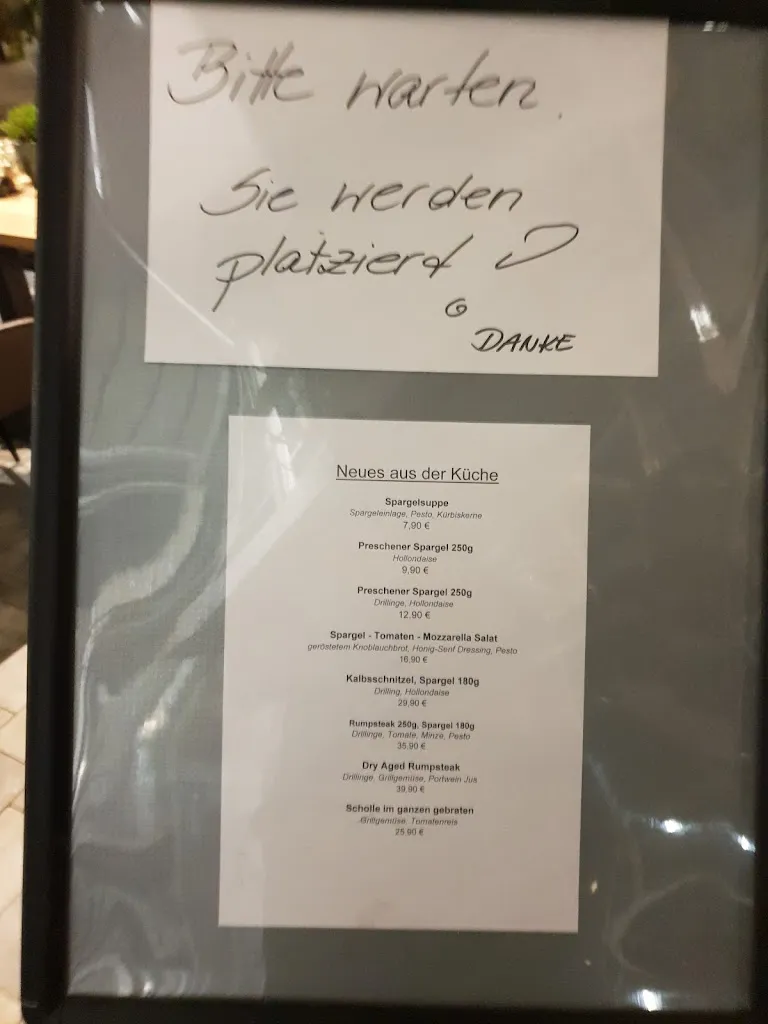 Bitte warten.
Sie werden
platziert
DANKE
Neues aus der Küche
Spargelsuppe
Spargeleinlage, Pesto, Kürbiskerne
7,90 €
Preschener Spargel 250g
Hollondaise
9,90 €
Preschener Spargel 250g
Drillinge, Hollondaise
12,90 €
Spargel - Tomaten - Mozzarella Salat
geröstetem Knoblauchbrot, Honig-Senf Dressing, Pesto
16,90 €
Kalbsschnitzel, Spargel 180g
Drilling, Hollondaise
29,90 €
Rumpsteak 250g, Spargel 180g
Drillinge, Tomate, Minze, Pesto
35,90 €
Dry Aged Rumpsteak
Drillinge, Grillgemüse, Portwein Jus
39,90 €
Scholle im ganzen gebraten
Grillgemüse, Tomatenreis
25,90 €